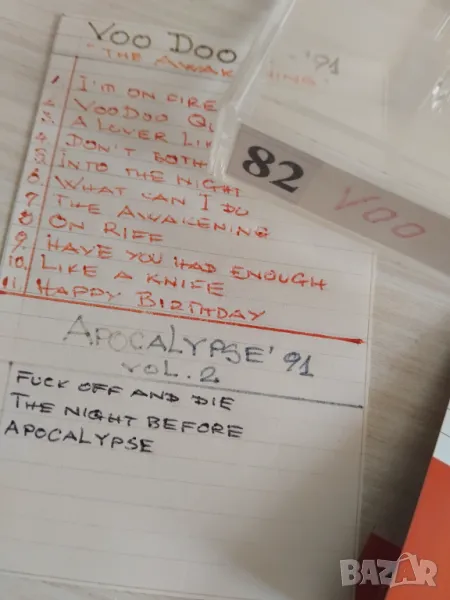 VOO DOO
"THE AWAKENING" '91
1. I'M ON FIRE
2. VOODOO
3. A LOVER
4. DON'T
5. INTO THE NIGHT
6. WHAT CAN I DO
7. THE AWAKENING
8. ON RIFF
9. HAVE YOU HAD ENOUGH
10. LIKE A KNIFE
11. HAPPY BIRTHDAY
APOCALYPSE '91
VOL. 2
FUCK OFF AND DIE
THE NIGHT BEFORE
APOCALYPSE
82 VOO
BAZAR